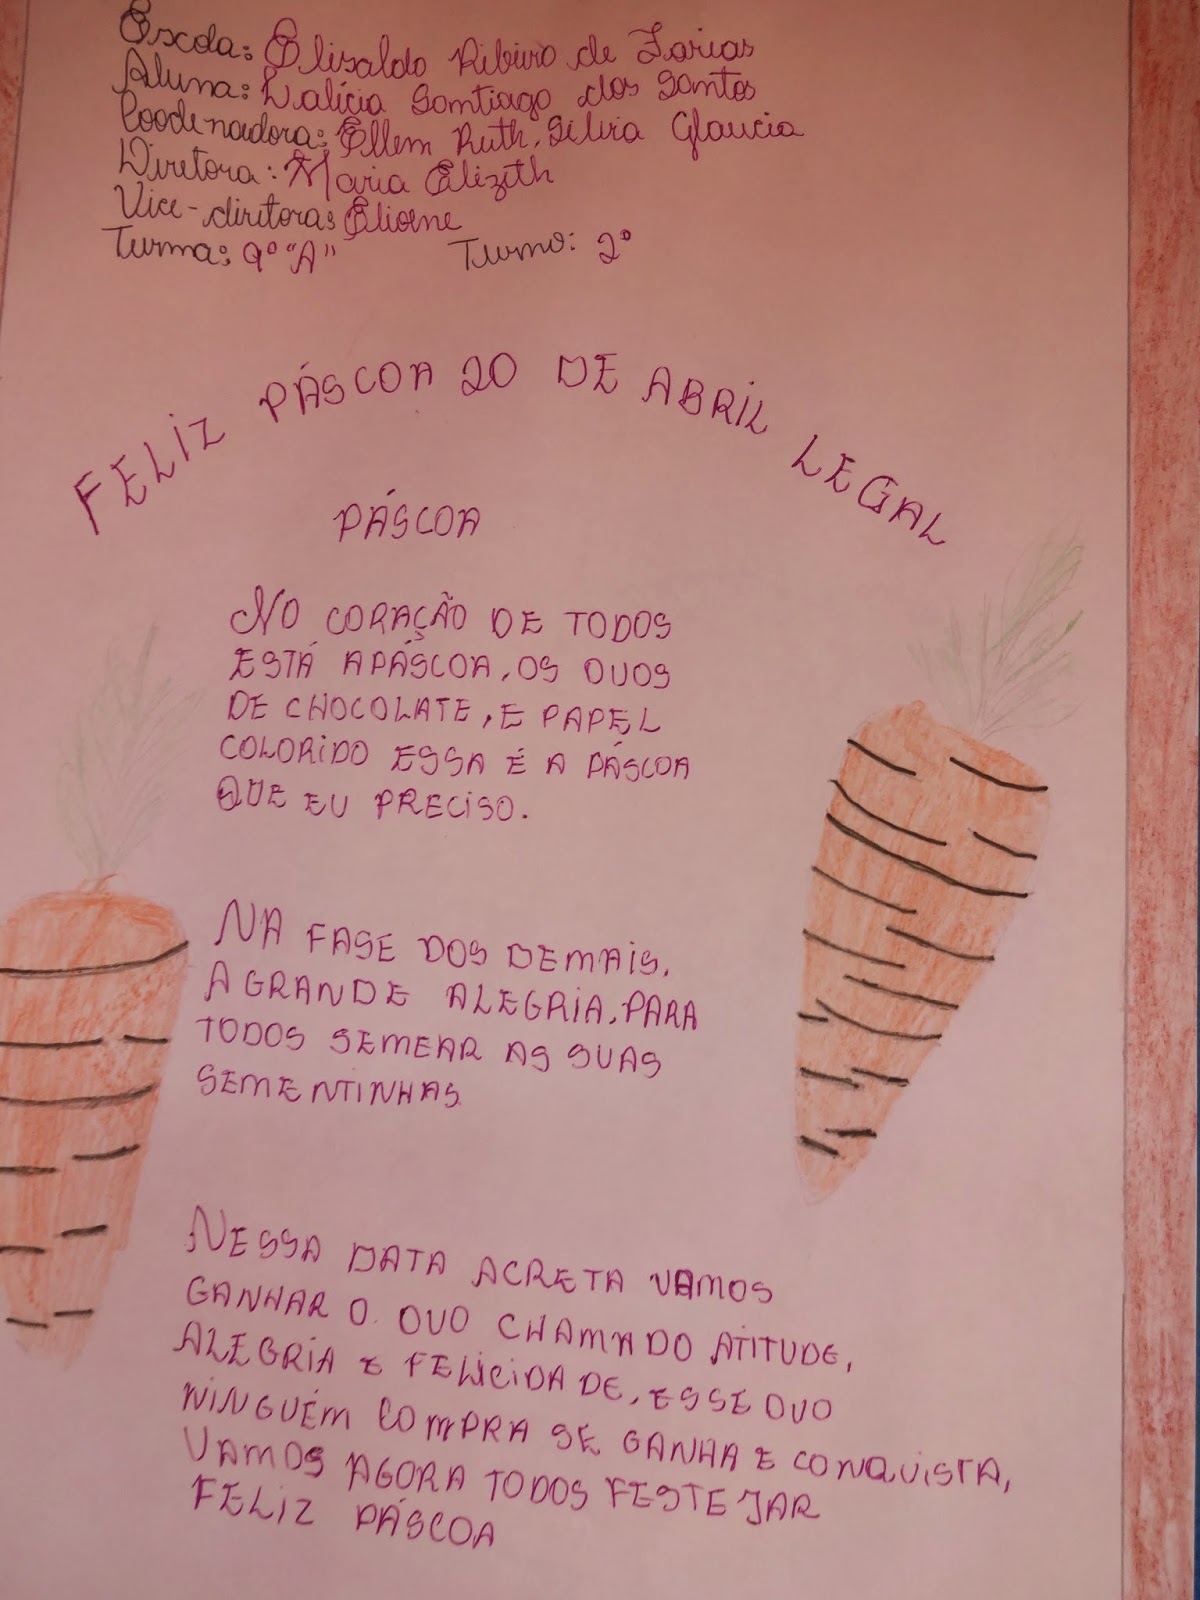 Escola: Elisaldo Ribeiro de Farias
Aluna: Walícia Santiago dos Santos
Coodenadora: Ellem Ruth, Silvia Glaucia
Diretora: Maria Elizith
Vice-diretora: Eliene
Turma: 9º "A" Turno: 2º
FELIZ PÁSCOA 20 DE ABRIL LEGAL
PÁSCOA
NO CORAÇÃO DE TODOS
ESTÁ A PÁSCOA, OS OVOS
DE CHOCOLATE, E PAPEL
COLORIDO ESSA É A PÁSCOA
QUE EU PRECISO.
NA FASE DOS DEMAIS,
A GRANDE ALEGRIA, PARA
TODOS SEMEAR AS SUAS
SEMENTINHAS
NESSA DATA ACRETA VAMOS
GANHAR O OVO CHAMADO ATITUDE,
ALEGRIA E FELICIDADE, ESSE OVO
NINGUÉM COMPRA SE GANHA E CONQUISTA,
VAMOS AGORA TODOS FESTEJAR
FELIZ PÁSCOA